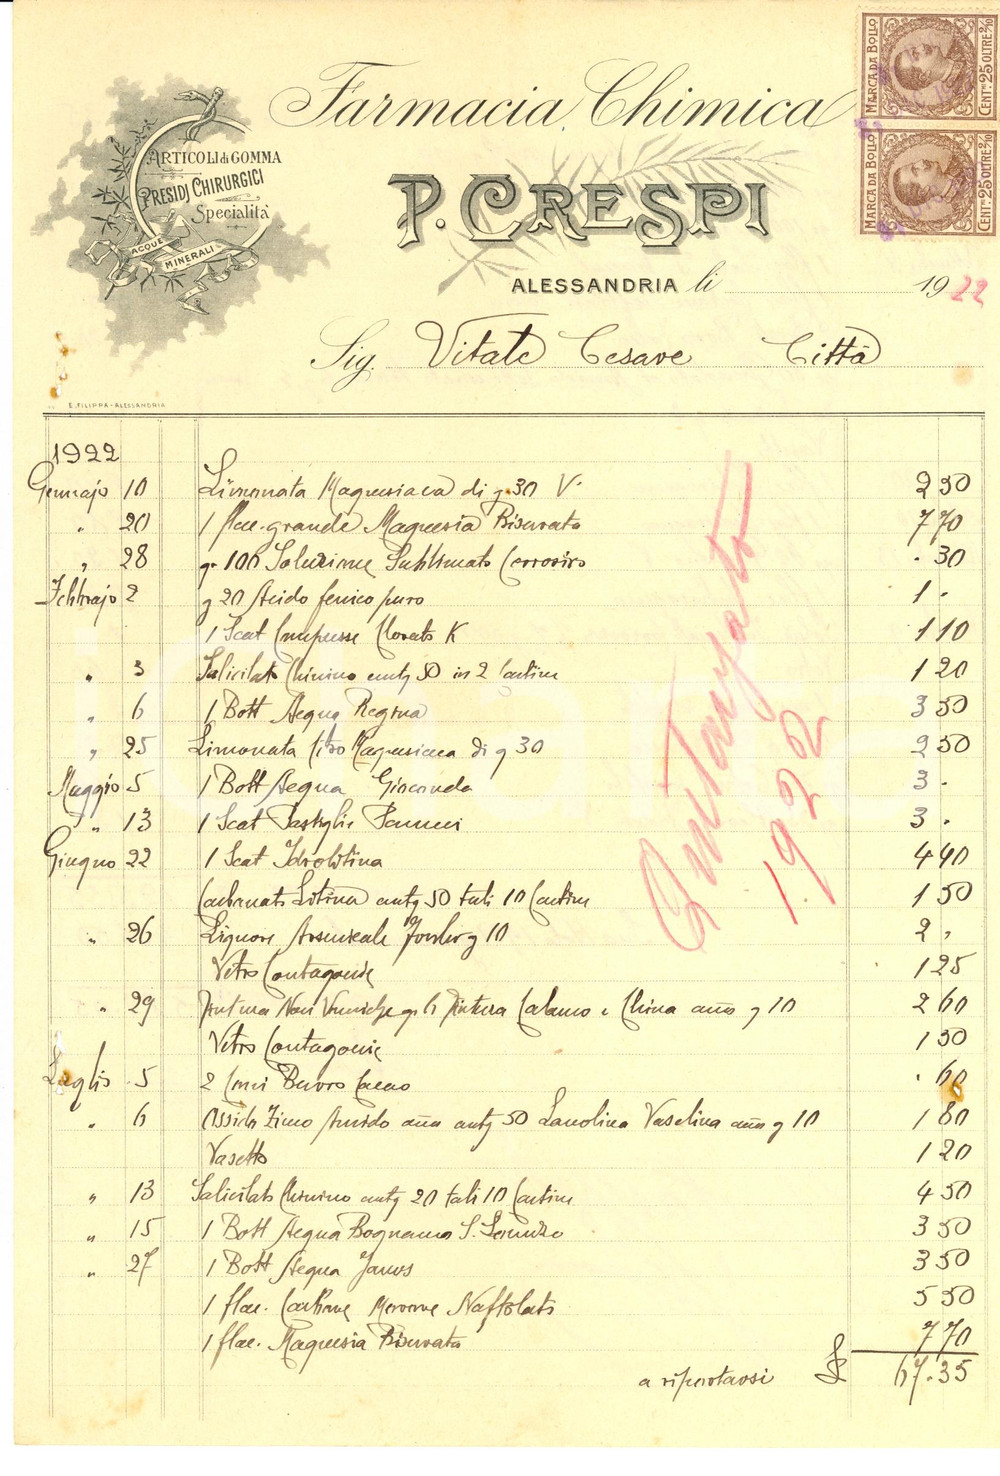 Farmacia Chimica
ARTICOLI di GOMMA
PRESIDI CHIRURGICI
Specialità
ACQUE
MINERALI
P. CRESPI
ALESSANDRIA li 1922
MARCA DA BOLLO
CENT.MI 25 OLTRE 2/10
MARCA DA BOLLO
CENT.MI 25 OLTRE 2/10
Sig. Vitale Cesare Città
E. FILIPPA - ALESSANDRIA
1922
Gennajo 10 Limonata Magnesiaca di g. 30 V. 2 50
" 20 1 flac. grande Magnesia Bisurata 7 70
" 28 gr 100 Soluzione Sublimato Corrosivo . 30
Febbrajo 2 g 20 Acido fenico puro 1 .
1 Scat Compresse Clorato K 1 10
" 3 Salicilato Chinino 50 in 2 Cartine 1 20
" 6 1 Bott Acqua Regina 3 50
" 25 Limonata Magnesiaca di g 30 2 50
Maggio 5 1 Bott Acqua Gioconda 3 .
" 13 1 Scat Pastiglie 3 .
Giugno 22 1 Scat Idrolitina 4 40
Carbonato Litina 50 tali 10 Cartine 1 50
" 26 Liquore Arsenicale g 10 2 .
Vetro Contagocie 1 25
" 29 Tintura Noci Tintura Calamo e China ana g 10 2 60
Vetro Contagocie 1 50
Luglio 5 2 Burro Cacao . 60
" 6 Ossido Zinco Amido ana 50 Lanolina Vaselina ana g 10 1 80
Vasetto 1 20
" 13 Salicilato Chinino 20 tali 10 Cartine 4 50
" 15 1 Bott Acqua Bognanco S. Lorenzo 3 50
" 27 1 Bott Acqua Janos 3 50
1 flac. Naftolato 5 50
1 flac. Magnesia Bisurata 7 70
a riportarsi £ 67.35
1922